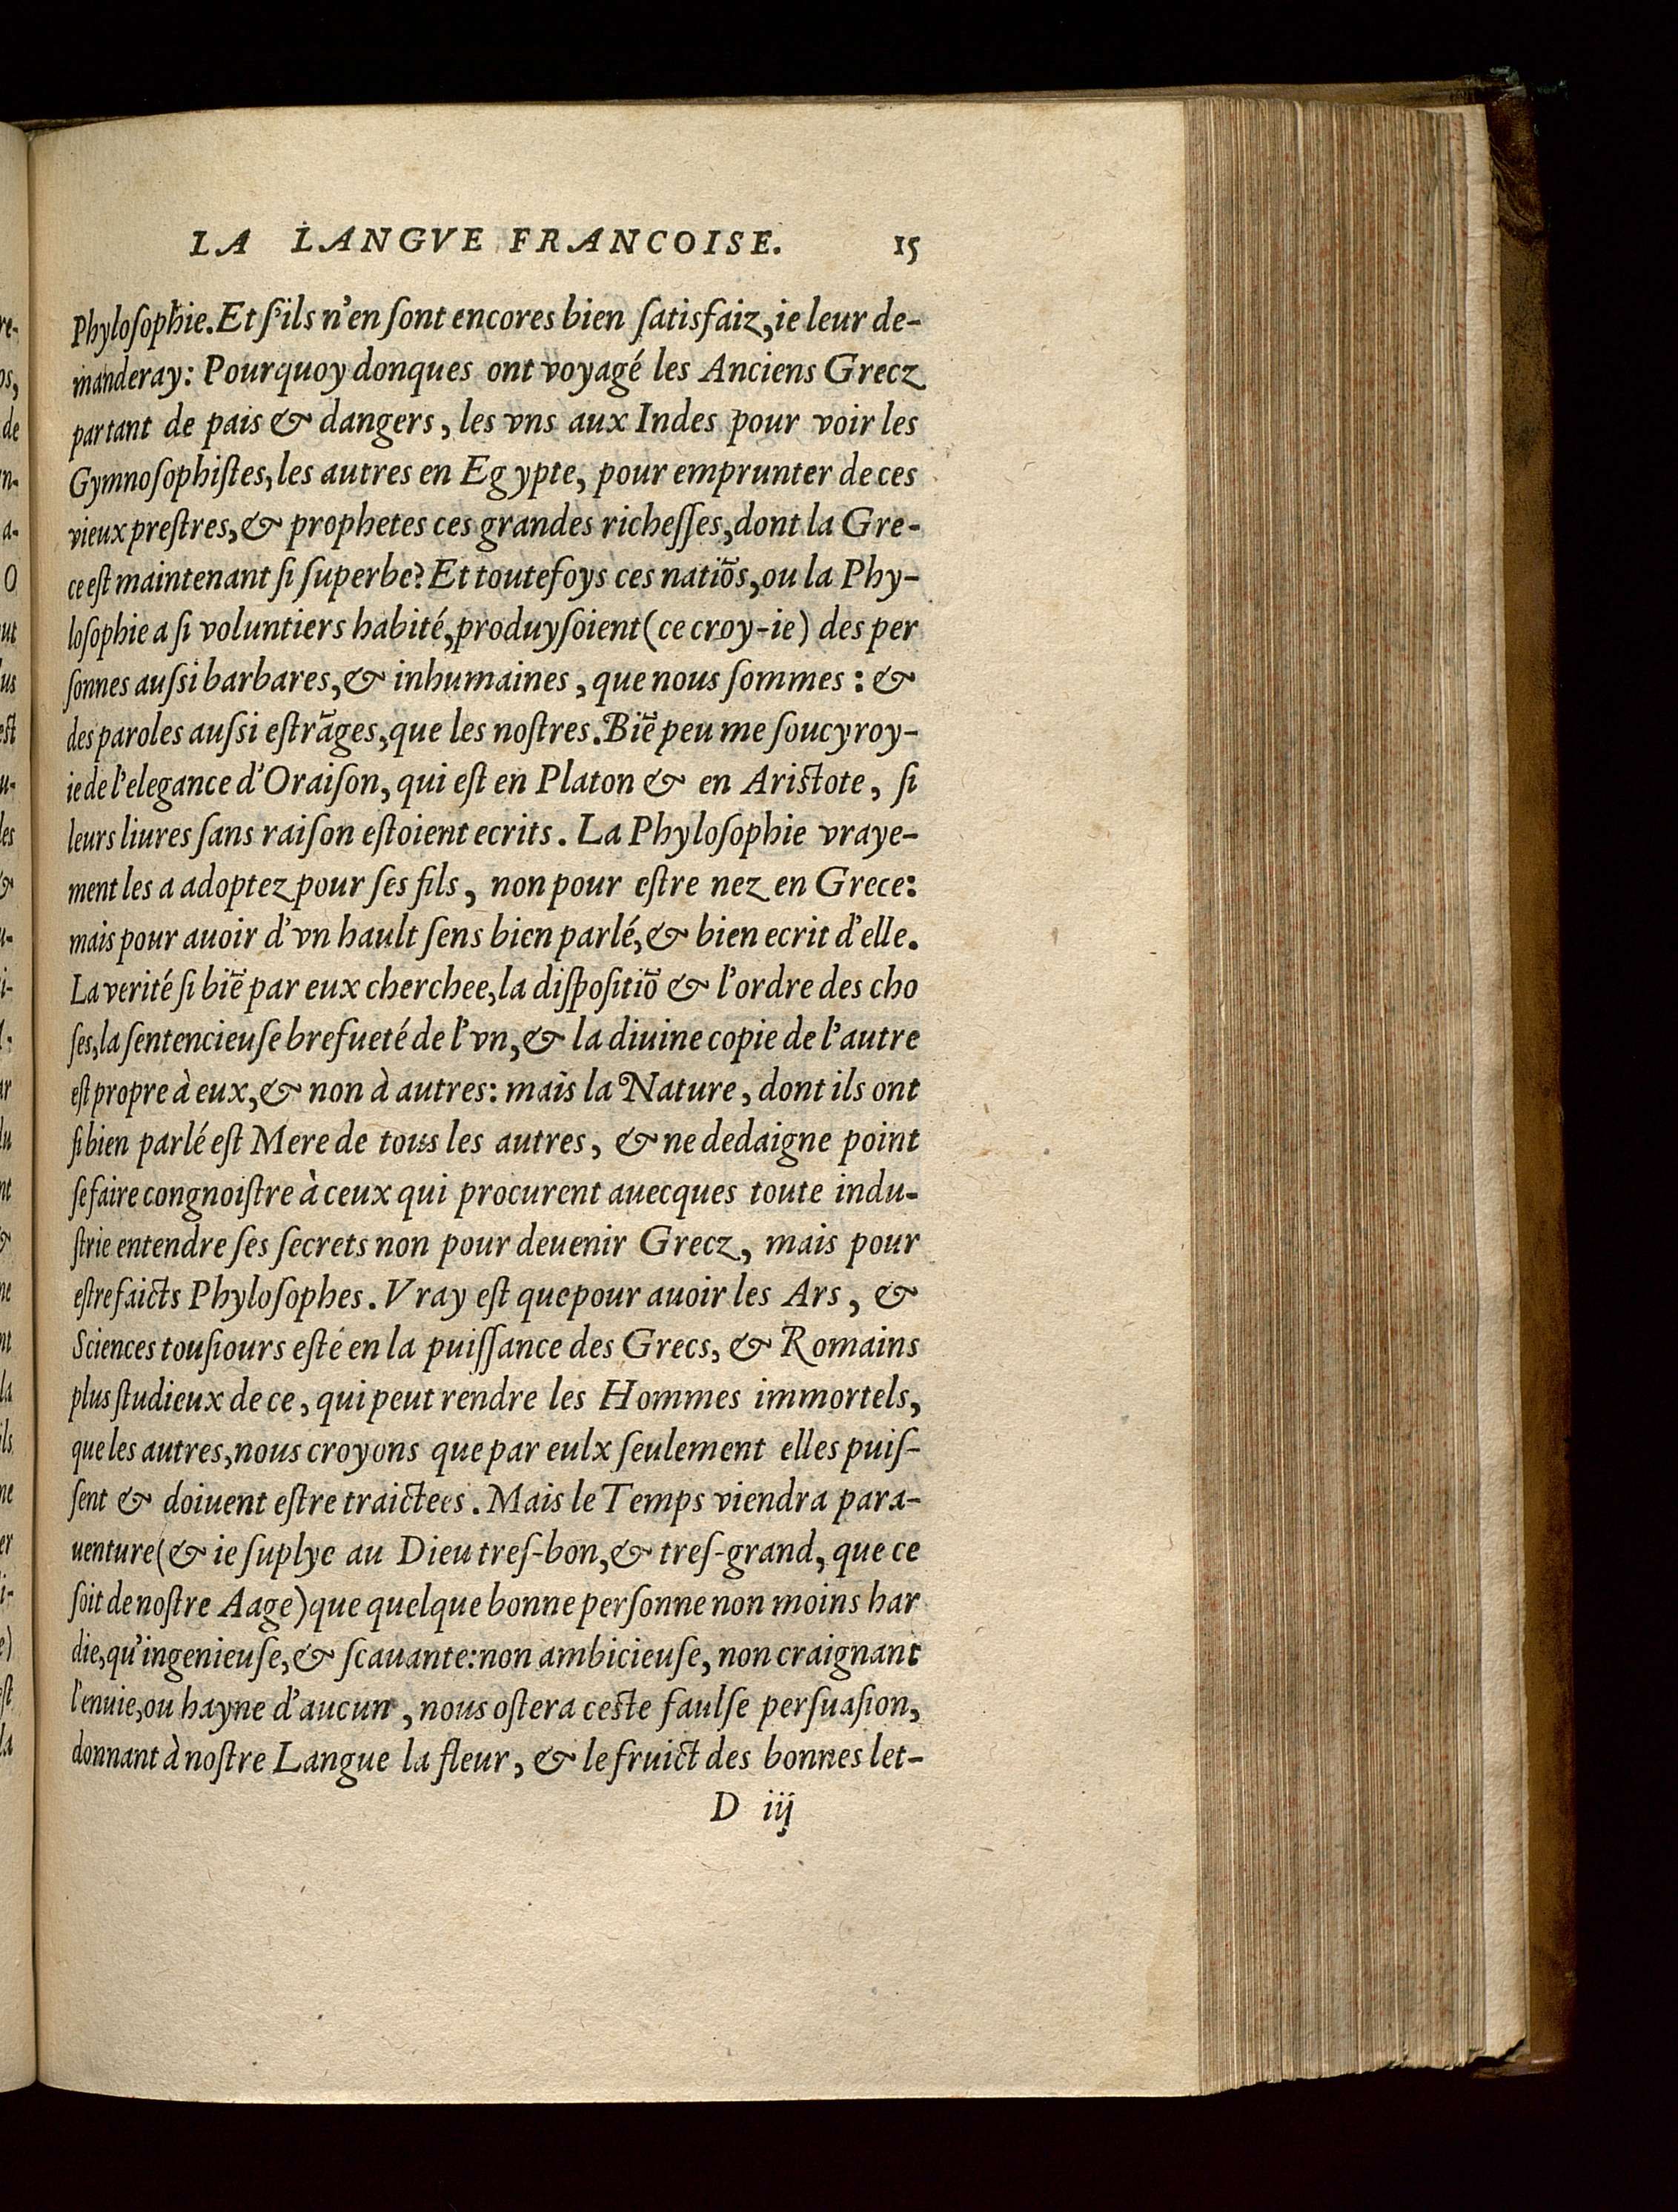 LA LANGVE FRANCOISE. 15
Phyloſophie. Et ſ'ils n'en ſont encores bien ſatisfaiz, ie leur de-
manderay: Pourquoy donques ont voyagé les Anciens Grecz
par tant de païs & dangers, les vns aux Indes pour voir les
Gymnoſophiſtes, les autres en Egypte, pour emprunter de ces
vieux preſtres, & prophetes ces grandes richeſſes, dont la Gre-
ce eſt maintenant ſi ſuperbe? Et toutefoys ces natiõs, ou la Phy-
loſophie a ſi voluntiers habité, produyſoient (ce croy-ie) des per
ſonnes auſsi barbares, & inhumaines, que nous ſommes: &
des paroles auſsi eſtrãges, que les noſtres. Biẽ peu me ſoucyroy-
ie de l'elegance d'Oraiſon, qui eſt en Platon & en Ariſtote, ſi
leurs liures ſans raiſon eſtoient ecrits. La Phyloſophie vraye-
ment les a adoptez pour ſes fils, non pour eſtre nez en Grece:
mais pour auoir d'vn hault ſens bien parlé, & bien ecrit d'elle.
La verité ſi biẽ par eux cherchee, la diſpoſitiõ & l'ordre des cho
ſes, la ſentencieuſe brefueté de l'vn, & la diuine copie de l'autre
eſt propre à eux, & non à autres: mais la Nature, dont ils ont
ſi bien parlé eſt Mere de tous les autres, & ne dedaigne point
ſe faire congnoiſtre à ceux qui procurent auecques toute indu-
ſtrie entendre ſes ſecrets non pour deuenir Grecz, mais pour
eſtre faicts Phyloſophes. Vray eſt que pour auoir les Ars, &
Sciences touſiours eſté en la puiſſance des Grecs, & Romains
plus ſtudieux de ce, qui peut rendre les Hommes immortels,
que les autres, nous croyons que par eulx ſeulement elles puiſ-
ſent & doiuent eſtre traictees. Mais le Temps viendra para-
uenture (& ie ſuplye au Dieu treſ-bon, & treſ-grand, que ce
ſoit de noſtre Aage) que quelque bonne perſonne non moins har
die, qu'ingenieuſe, & ſcauante: non ambicieuſe, non craignant
l'enuie, ou hayne d'aucun, nous oſtera ceſte faulſe perſuaſion,
donnant à noſtre Langue la fleur, & le fruict des bonnes let-
D iij